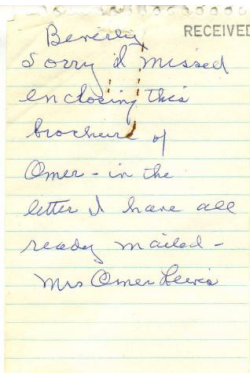 RECEIVED
Beverly
Sorry I missed
enclosing this
brochure of
Omer - in the
letter I have all
ready mailed -
Mrs Omer Lewis